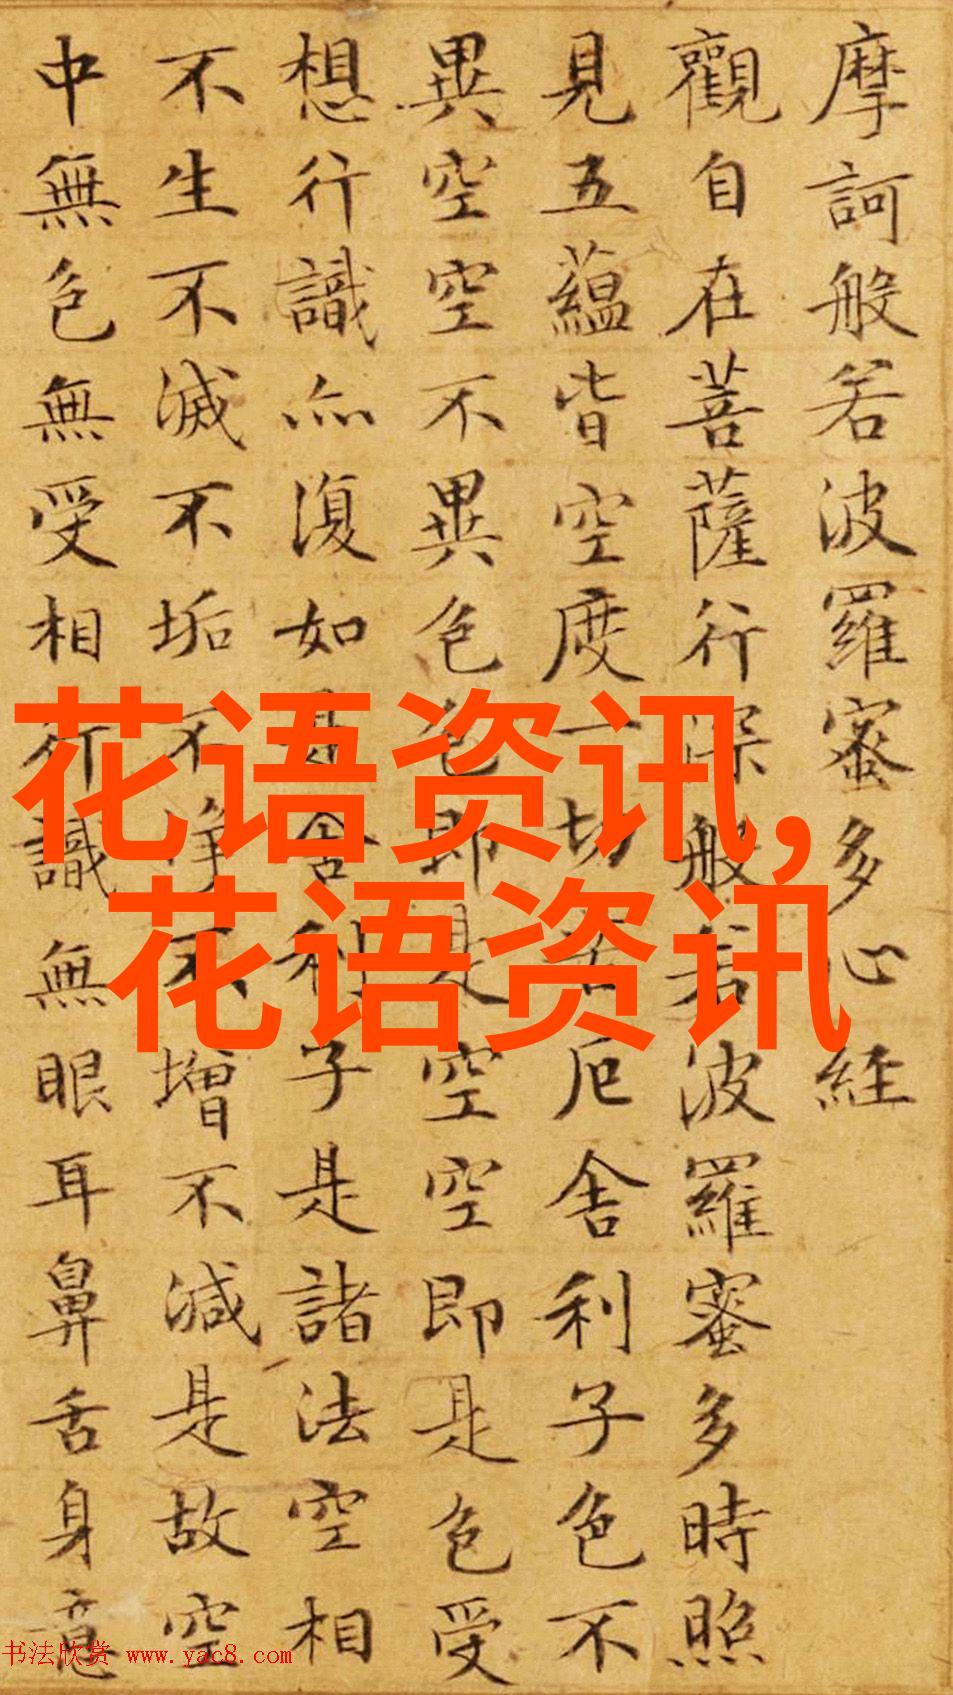 摩訶般若波羅蜜多心経
觀自在菩薩行深般若波羅蜜多時照
見五蘊皆空度一切苦厄舍利子色不
異空空不異色色即是空空即是色受
想行識亦復如是舍利子是諸法空相
不生不滅不垢不淨不增不減是故空
中無色無受相行識無眼耳鼻舌身意
花语资讯,
花语资讯
书法欣赏 www.yac8.com